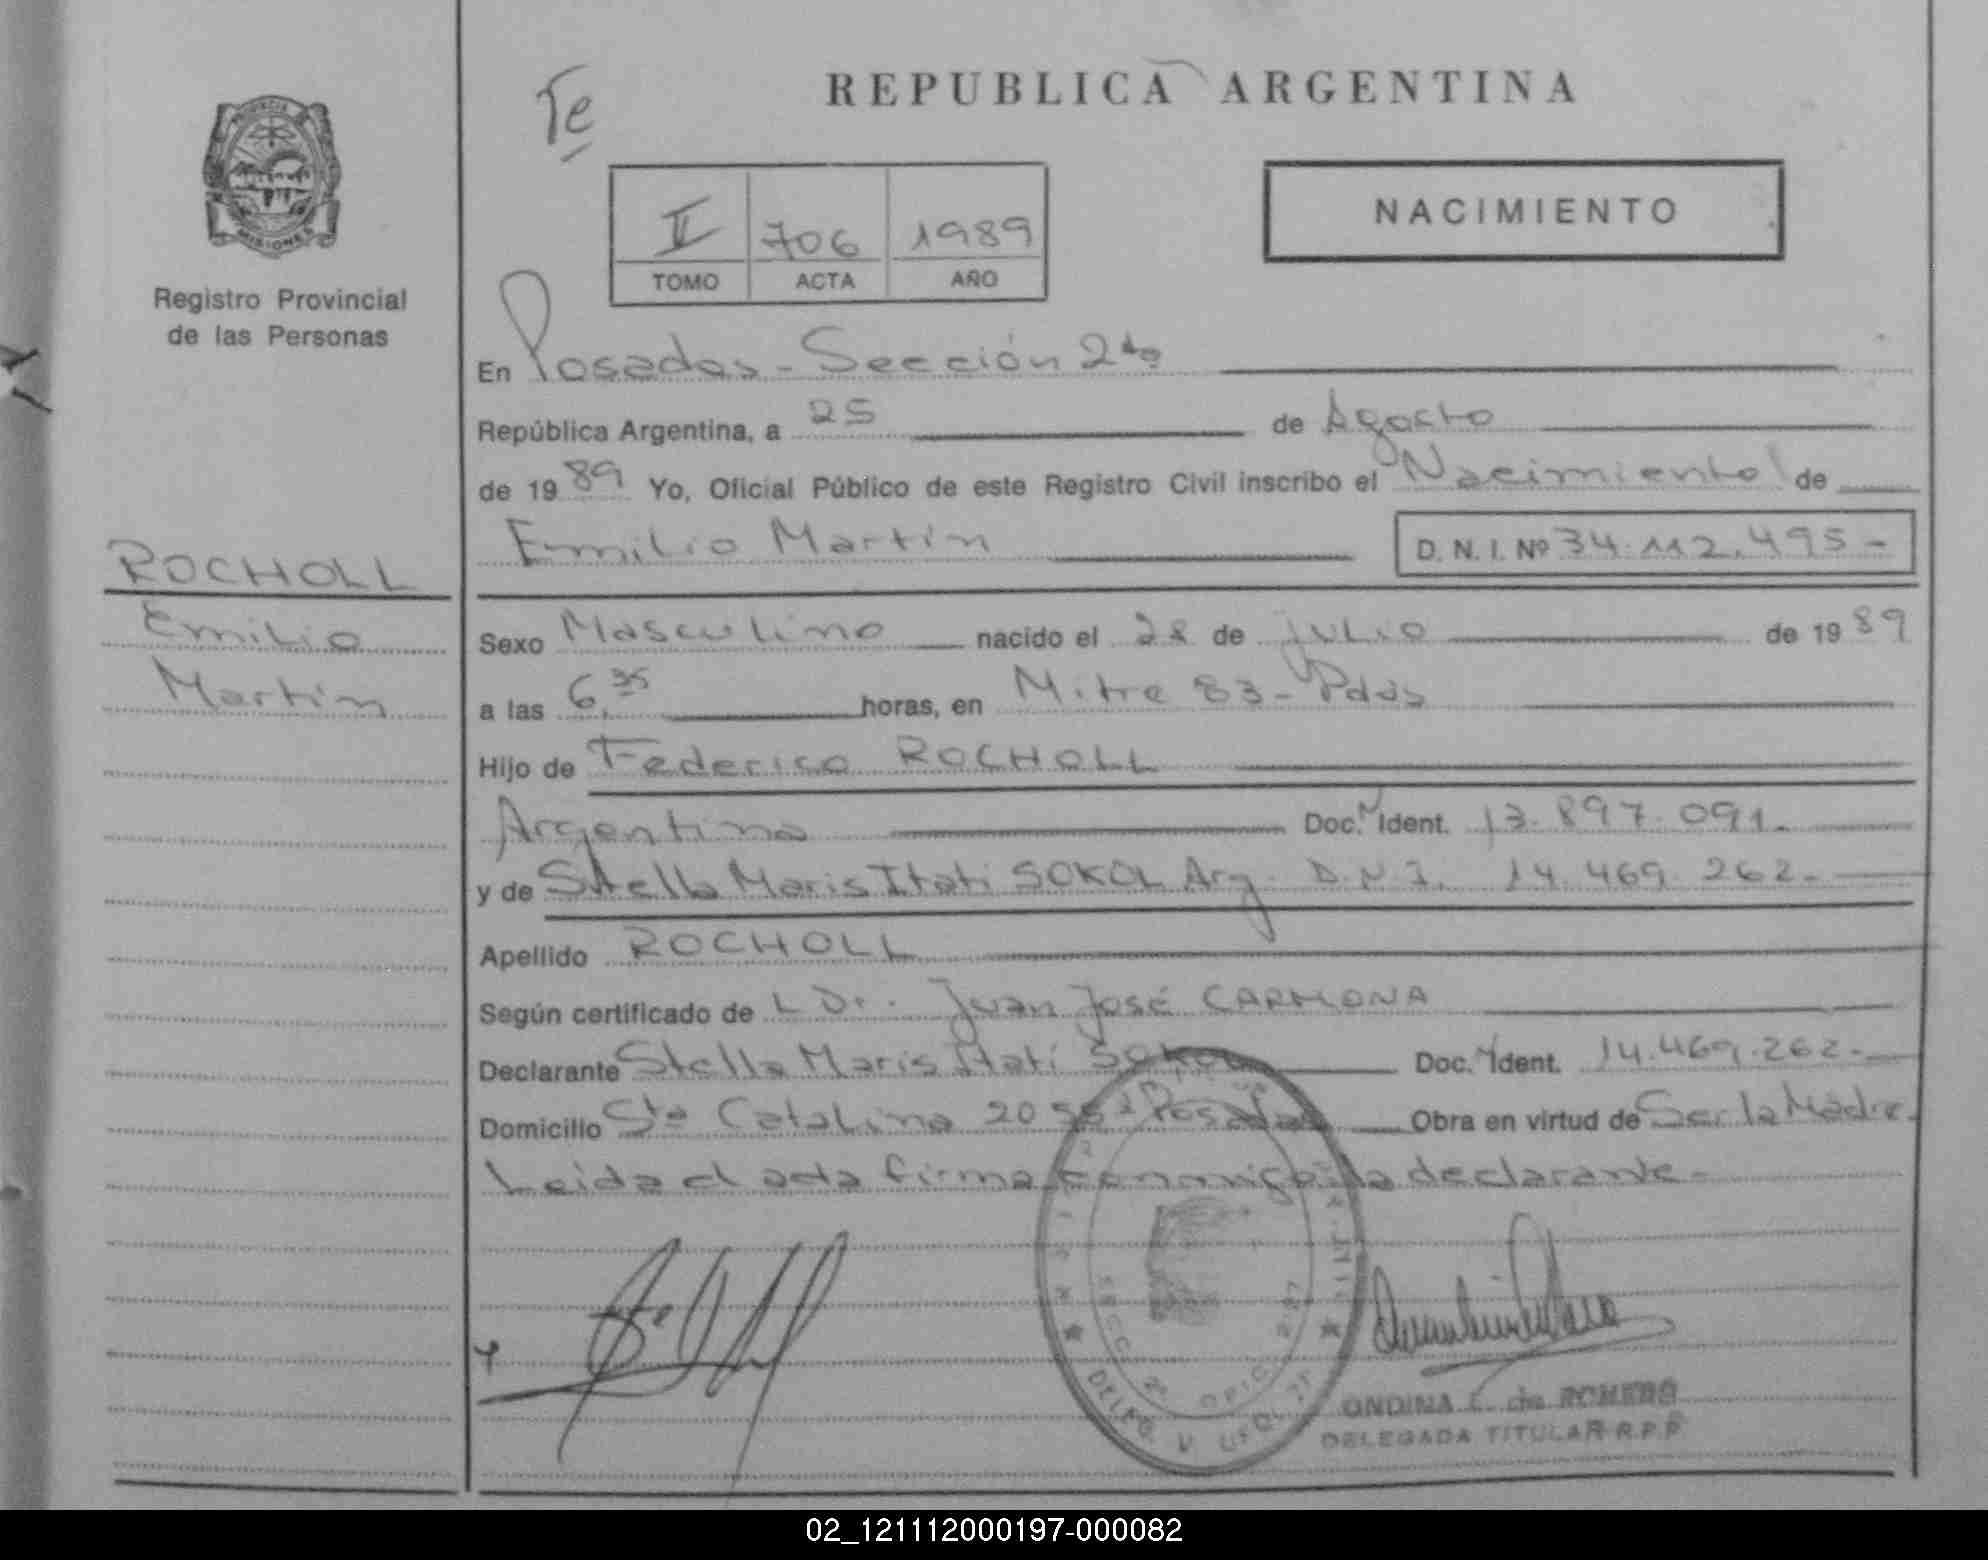 Te
REPUBLICA ARGENTINA
PROVINCIA
MISIONES
Registro Provincial
de las Personas
II 706 1989
TOMO ACTA AÑO
NACIMIENTO
En Posadas - Sección 2da
República Argentina, a 25 de Agosto
de 1989 Yo, Oficial Público de este Registro Civil inscribo el Nacimiento de
Emilio Martín D. N. I. Nº 34.112.495-
ROCHOLL
Emilio
Martín
Sexo Masculino nacido el 28 de julio de 1989
a las 6,35 horas, en Mitre 83 - Pdas
Hijo de Federico ROCHOLL
Argentino Doc. Ident. 13.897.091.
y de Stella Maris Itati SOKOL Arg. D.N.I. 14.469.262-
Apellido ROCHOLL
Según certificado de L Dr. Juan José CARMONA
Declarante Stella Maris Itatí SOKOL Doc. Ident. 14.469.262-
Domicilio Sta Catalina Posadas Obra en virtud de Ser la Madre.
Leida el acta firma conmigo la declarante-
SECC. 2ª OFIC.
DELEG.
ONDINA E. de ROMERO
DELEGADA TITULAR R.P.P.
02_121112000197-000082